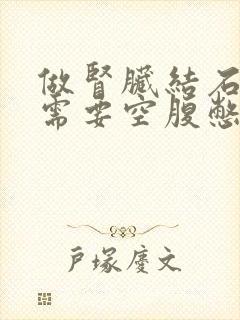 做腎臟結石
需要空腹憋
戶塚慶文